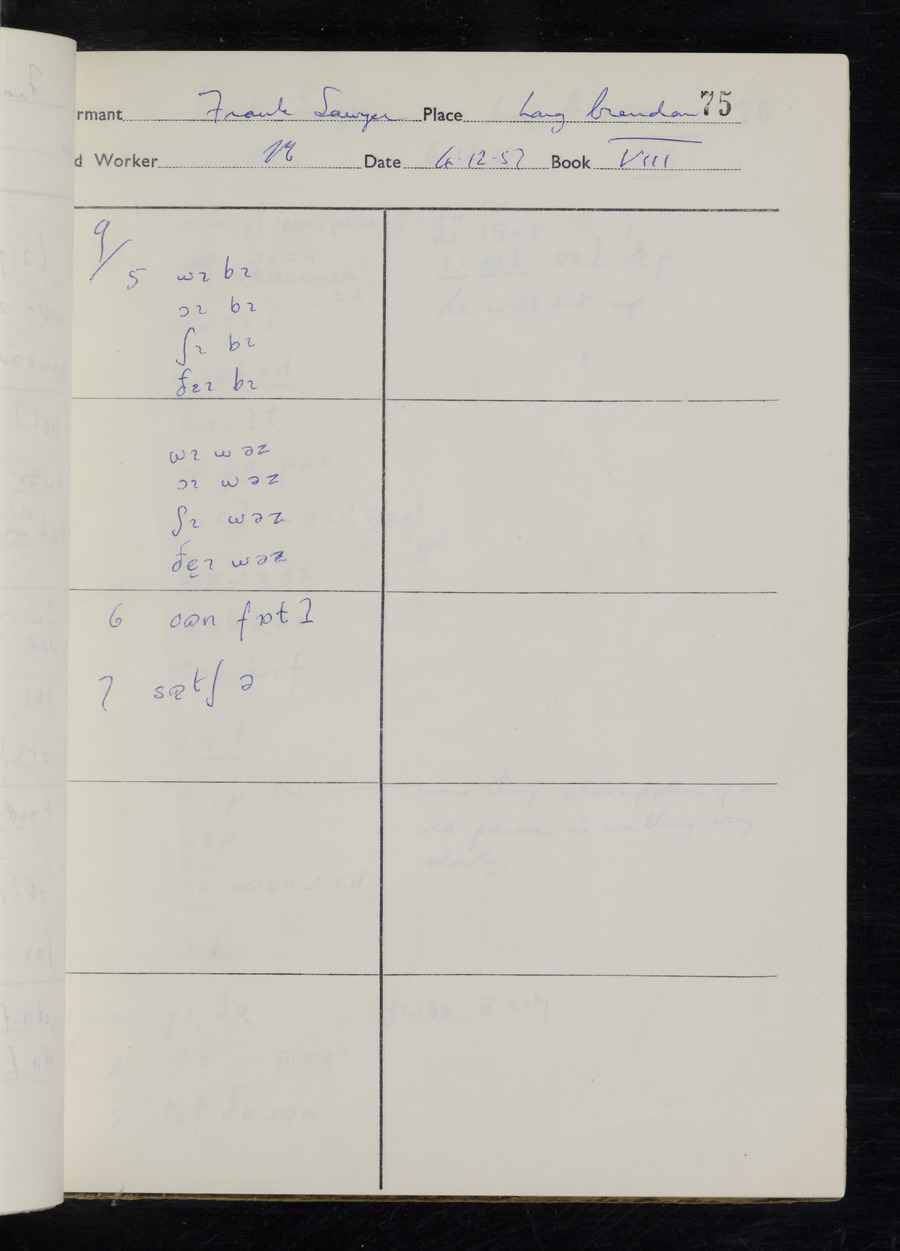 rmant Frank Sawyer Place Long Crendon 75
d Worker Date 6.12.57 Book VIII
9/
5 wɪ bɪ
ɔɪ bɪ
ʃɪ bɪ
ðɛɪ bɪ
wɪ wəz
ɔɪ wəz
ʃɪ wəz
ðe̞ɪ wəz
6
7 sætʃ ə